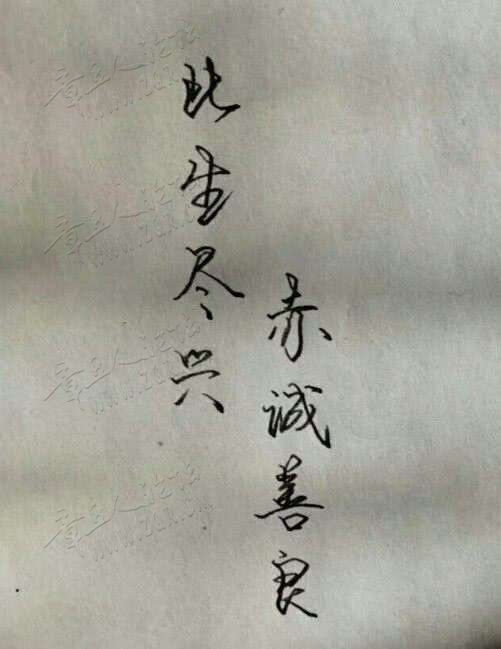 此生尽兴
赤诚善良